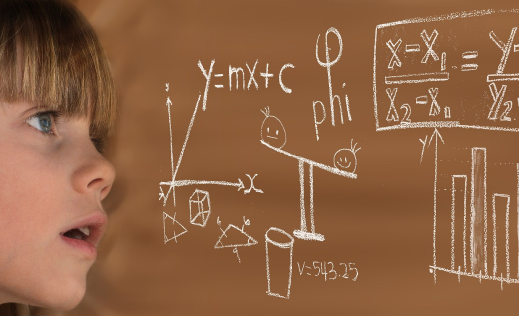 y=mx+c
phi
x-x₁ = y-
x₂-x₁ y₂-
y
x
V=543.25